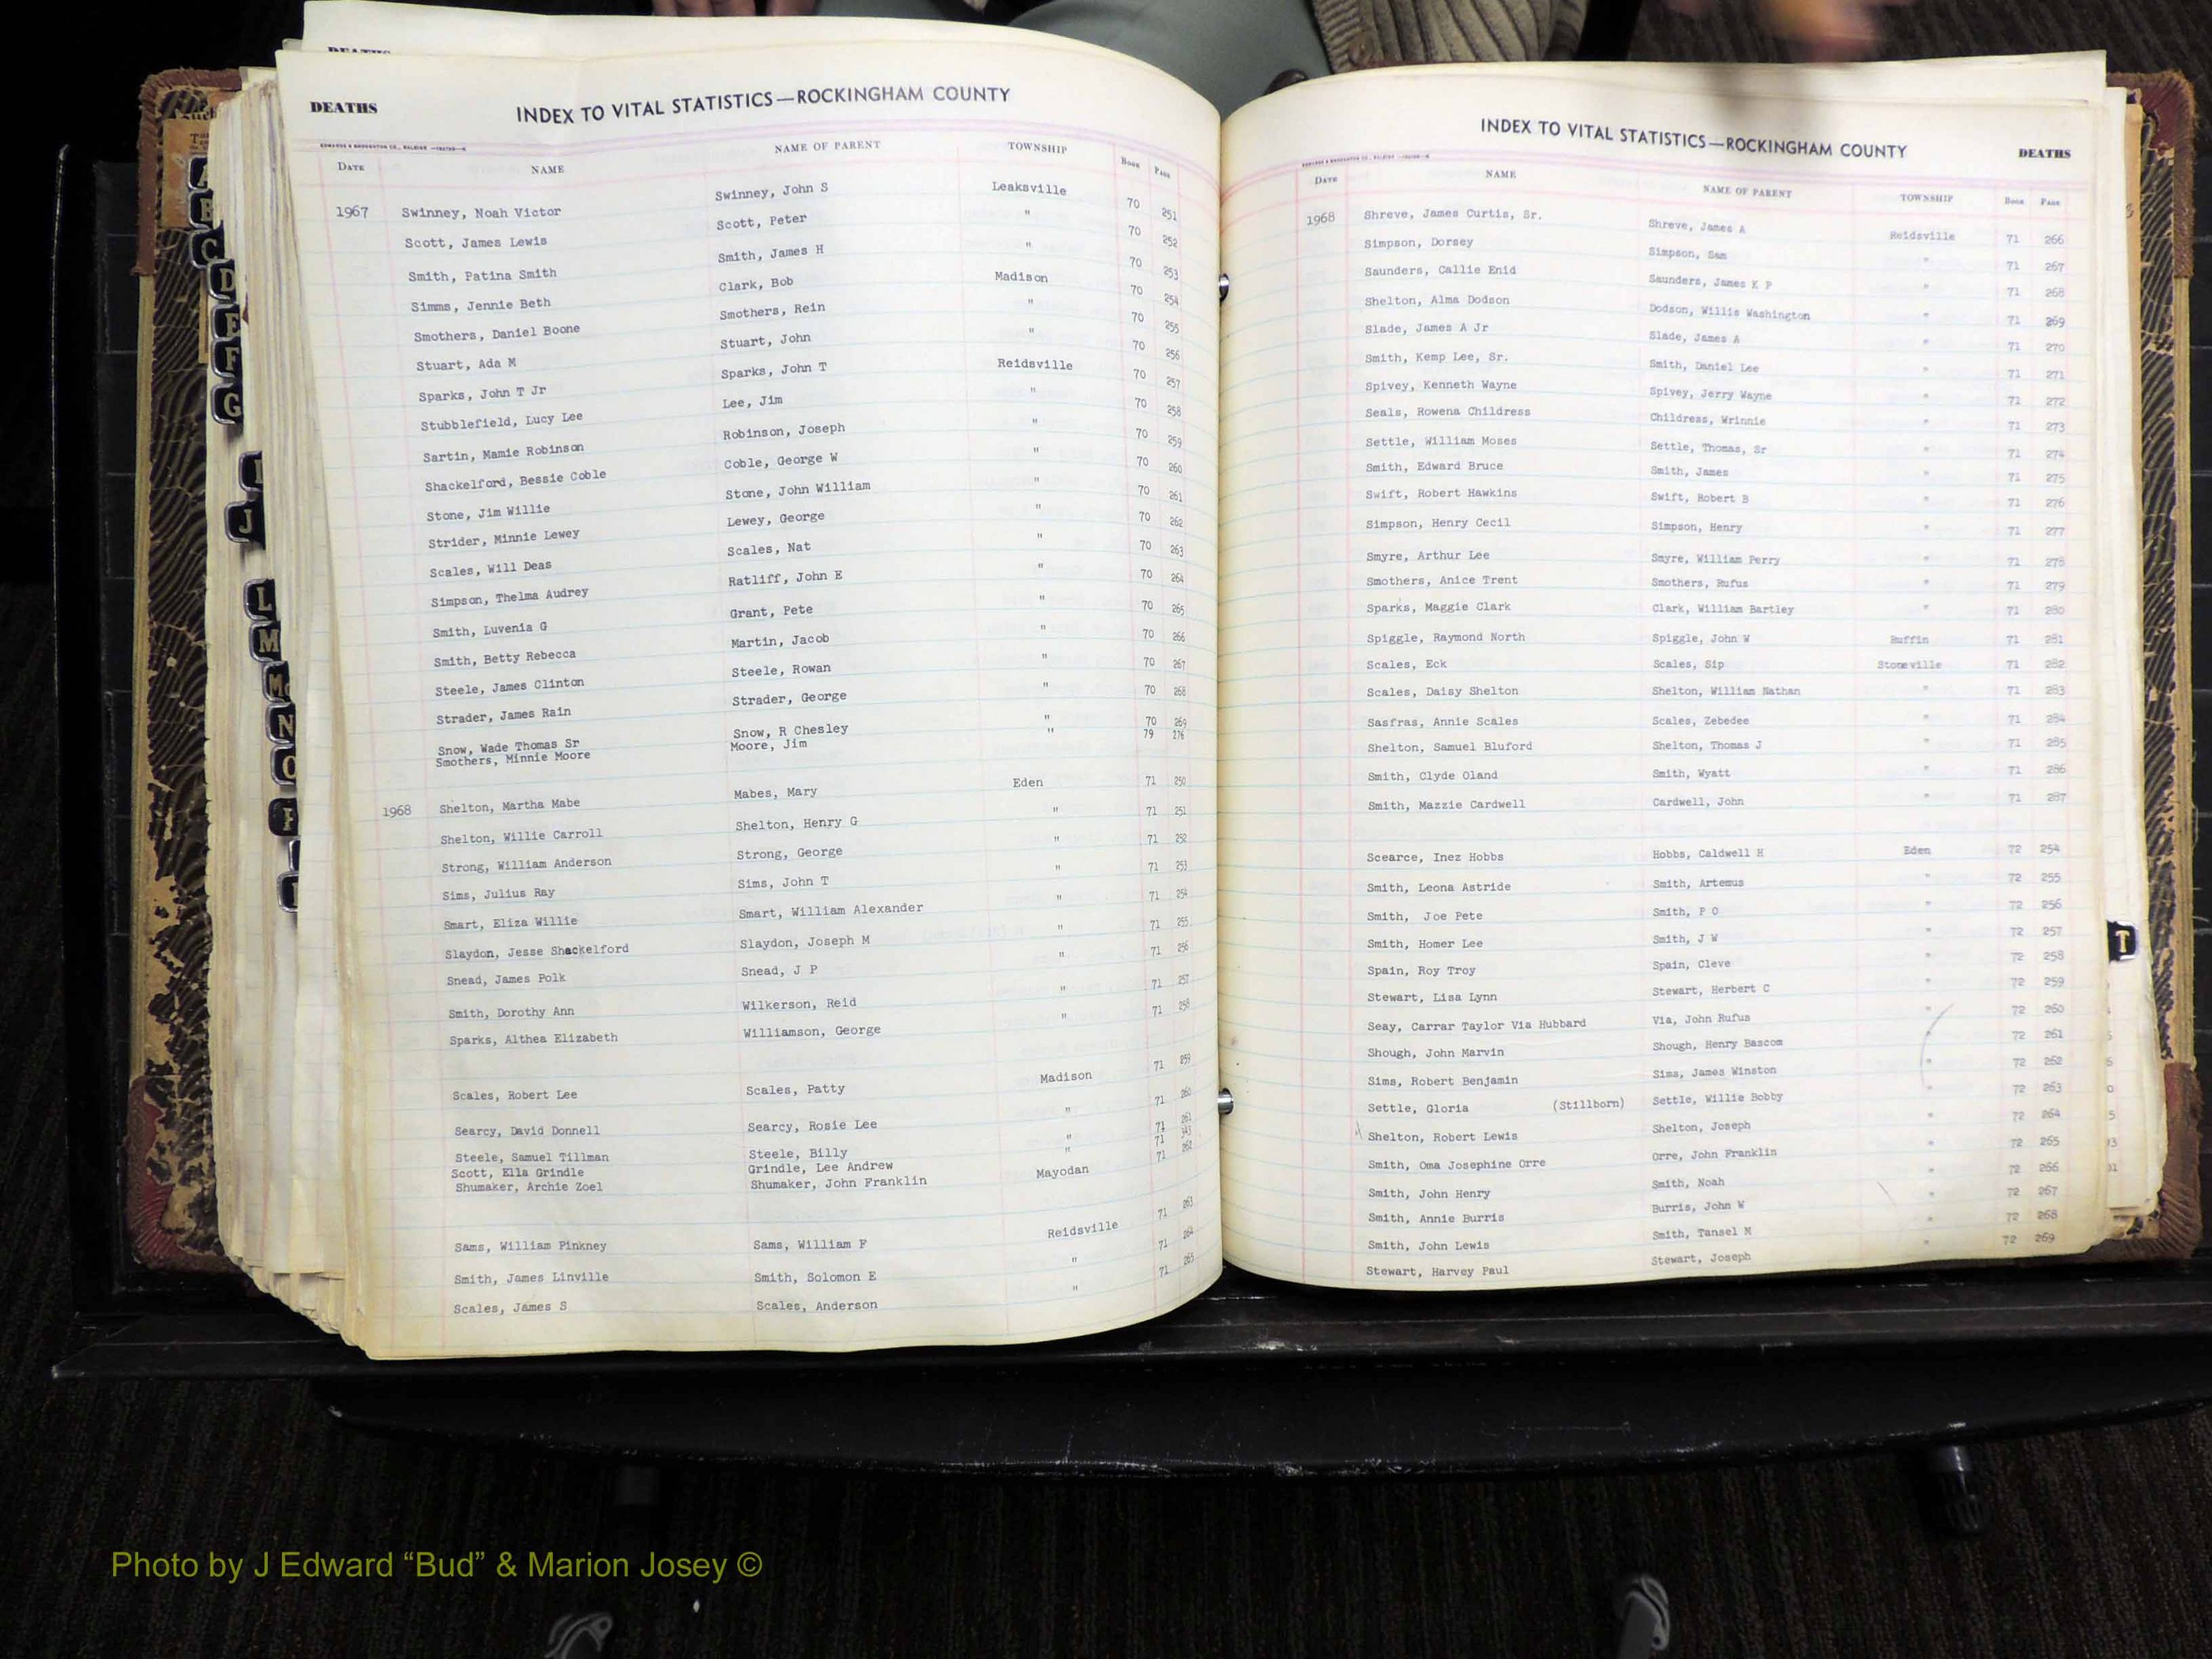 DEATHS
DEATHS
INDEX TO VITAL STATISTICS—ROCKINGHAM COUNTY
DATE NAME NAME OF PARENT TOWNSHIP BOOK PAGE
1967 Swinney, Noah Victor Swinney, John S Leaksville 70 251
Scott, James Lewis Scott, Peter " 70 252
Smith, Patina Smith Smith, James H " 70 253
Simms, Jennie Beth Clark, Bob Madison 70 254
Smothers, Daniel Boone Smothers, Rein " 70 255
Stuart, Ada M Stuart, John " 70 256
Sparks, John T Jr Sparks, John T Reidsville 70 257
Stubblefield, Lucy Lee Lee, Jim " 70 258
Sartin, Mamie Robinson Robinson, Joseph " 70 259
Shackelford, Bessie Coble Coble, George W " 70 260
Stone, Jim Willie Stone, John William " 70 261
Strider, Minnie Lewey Lewey, George " 70 262
Scales, Will Deas Scales, Nat " 70 263
Simpson, Thelma Audrey Ratliff, John E " 70 264
Smith, Luvenia G Grant, Pete " 70 265
Smith, Betty Rebecca Martin, Jacob " 70 266
Steele, James Clinton Steele, Rowan " 70 267
Strader, James Rain Strader, George " 70 268
Snow, Wade Thomas Sr Snow, R Chesley " 70 269
Smothers, Minnie Moore Moore, Jim " 79 276
1968 Shelton, Martha Mabe Mabes, Mary Eden 71 250
Shelton, Willie Carroll Shelton, Henry G " 71 251
Strong, William Anderson Strong, George " 71 252
Sims, Julius Ray Sims, John T " 71 253
Smart, Eliza Willie Smart, William Alexander " 71 254
Slaydon, Jesse Shackelford Slaydon, Joseph M " 71 255
Snead, James Polk Snead, J P " 71 256
Smith, Dorothy Ann Wilkerson, Reid " 71 257
Sparks, Althea Elizabeth Williamson, George " 71 258
Scales, Robert Lee Scales, Patty Madison 71 259
Searcy, David Donnell Searcy, Rosie Lee " 71 260
Steele, Samuel Tillman Steele, Billy " 71 261
Scott, Ella Grindle Grindle, Lee Andrew " 71 343
Shumaker, Archie Zoel Shumaker, John Franklin Mayodan 71 262
Sams, William Pinkney Sams, William F Reidsville 71 263
Smith, James Linville Smith, Solomon E " 71 264
Scales, James S Scales, Anderson " 71 265
INDEX TO VITAL STATISTICS—ROCKINGHAM COUNTY
DEATHS
DATE NAME NAME OF PARENT TOWNSHIP BOOK PAGE
1968 Shreve, James Curtis, Sr. Shreve, James A Reidsville 71 266
Simpson, Dorsey Simpson, Sam " 71 267
Saunders, Callie Enid Saunders, James K P " 71 268
Shelton, Alma Dodson Dodson, Willis Washington " 71 269
Slade, James A Jr Slade, James A " 71 270
Smith, Kemp Lee, Sr. Smith, Daniel Lee " 71 271
Spivey, Kenneth Wayne Spivey, Jerry Wayne " 71 272
Seals, Rowena Childress Childress, Wrinnie " 71 273
Settle, William Moses Settle, Thomas, Sr " 71 274
Smith, Edward Bruce Smith, James " 71 275
Swift, Robert Hawkins Swift, Robert B " 71 276
Simpson, Henry Cecil Simpson, Henry " 71 277
Smyre, Arthur Lee Smyre, William Perry " 71 278
Smothers, Anice Trent Smothers, Rufus " 71 279
Sparks, Maggie Clark Clark, William Bartley " 71 280
Spiggle, Raymond North Spiggle, John W Ruffin 71 281
Scales, Eck Scales, Sip Stoneville 71 282
Scales, Daisy Shelton Shelton, William Nathan " 71 283
Sasfras, Annie Scales Scales, Zebedee " 71 284
Shelton, Samuel Bluford Shelton, Thomas J " 71 285
Smith, Clyde Oland Smith, Wyatt " 71 286
Smith, Mazzie Cardwell Cardwell, John " 71 287
Scearce, Inez Hobbs Hobbs, Caldwell H Eden 72 254
Smith, Leona Astride Smith, Artemus " 72 255
Smith, Joe Pete Smith, P O " 72 256
Smith, Homer Lee Smith, J W " 72 257
Spain, Roy Troy Spain, Cleve " 72 258
Stewart, Lisa Lynn Stewart, Herbert C " 72 259
Seay, Carrar Taylor Via Hubbard Via, John Rufus " 72 260
Shough, John Marvin Shough, Henry Bascom " 72 261
Sims, Robert Benjamin Sims, James Winston " 72 262
Settle, Gloria (Stillborn) Settle, Willie Bobby " 72 263
Shelton, Robert Lewis Shelton, Joseph " 72 264
Smith, Oma Josephine Orre Orre, John Franklin " 72 265
Smith, John Henry Smith, Noah " 72 266
Smith, Annie Burris Burris, John W " 72 267
Smith, John Lewis Smith, Tansel M " 72 268
Stewart, Harvey Paul Stewart, Joseph " 72 269
C
D
E
F
G
J
L
M
Mc
N
O
P
T
Photo by J Edward “Bud” & Marion Josey ©